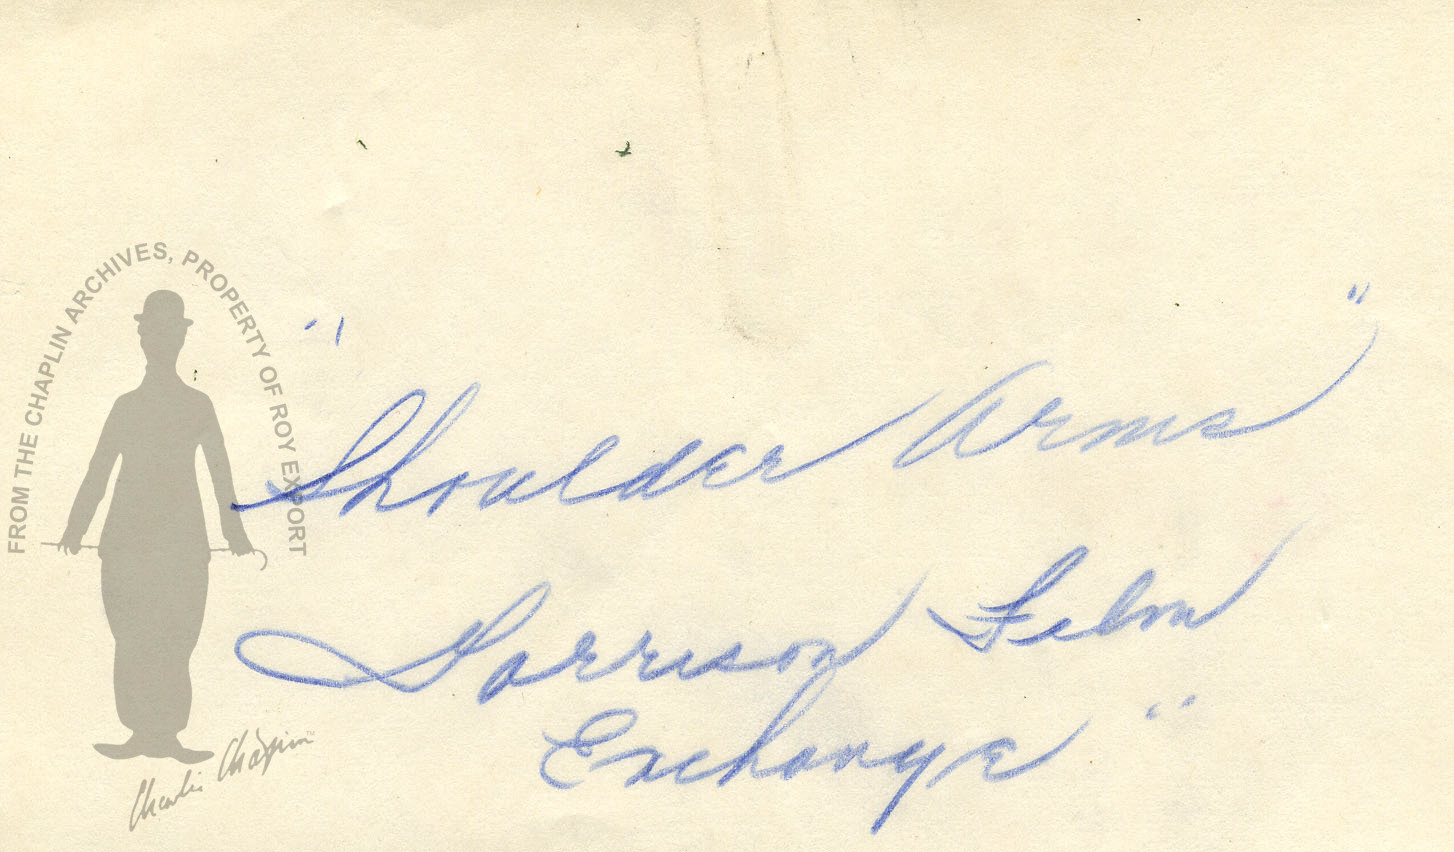 FROM THE CHAPLIN ARCHIVES, PROPERTY OF ROY EXPORT
"Shoulder Arms"
Garrison Film
Exchange"
Charlie Chaplin